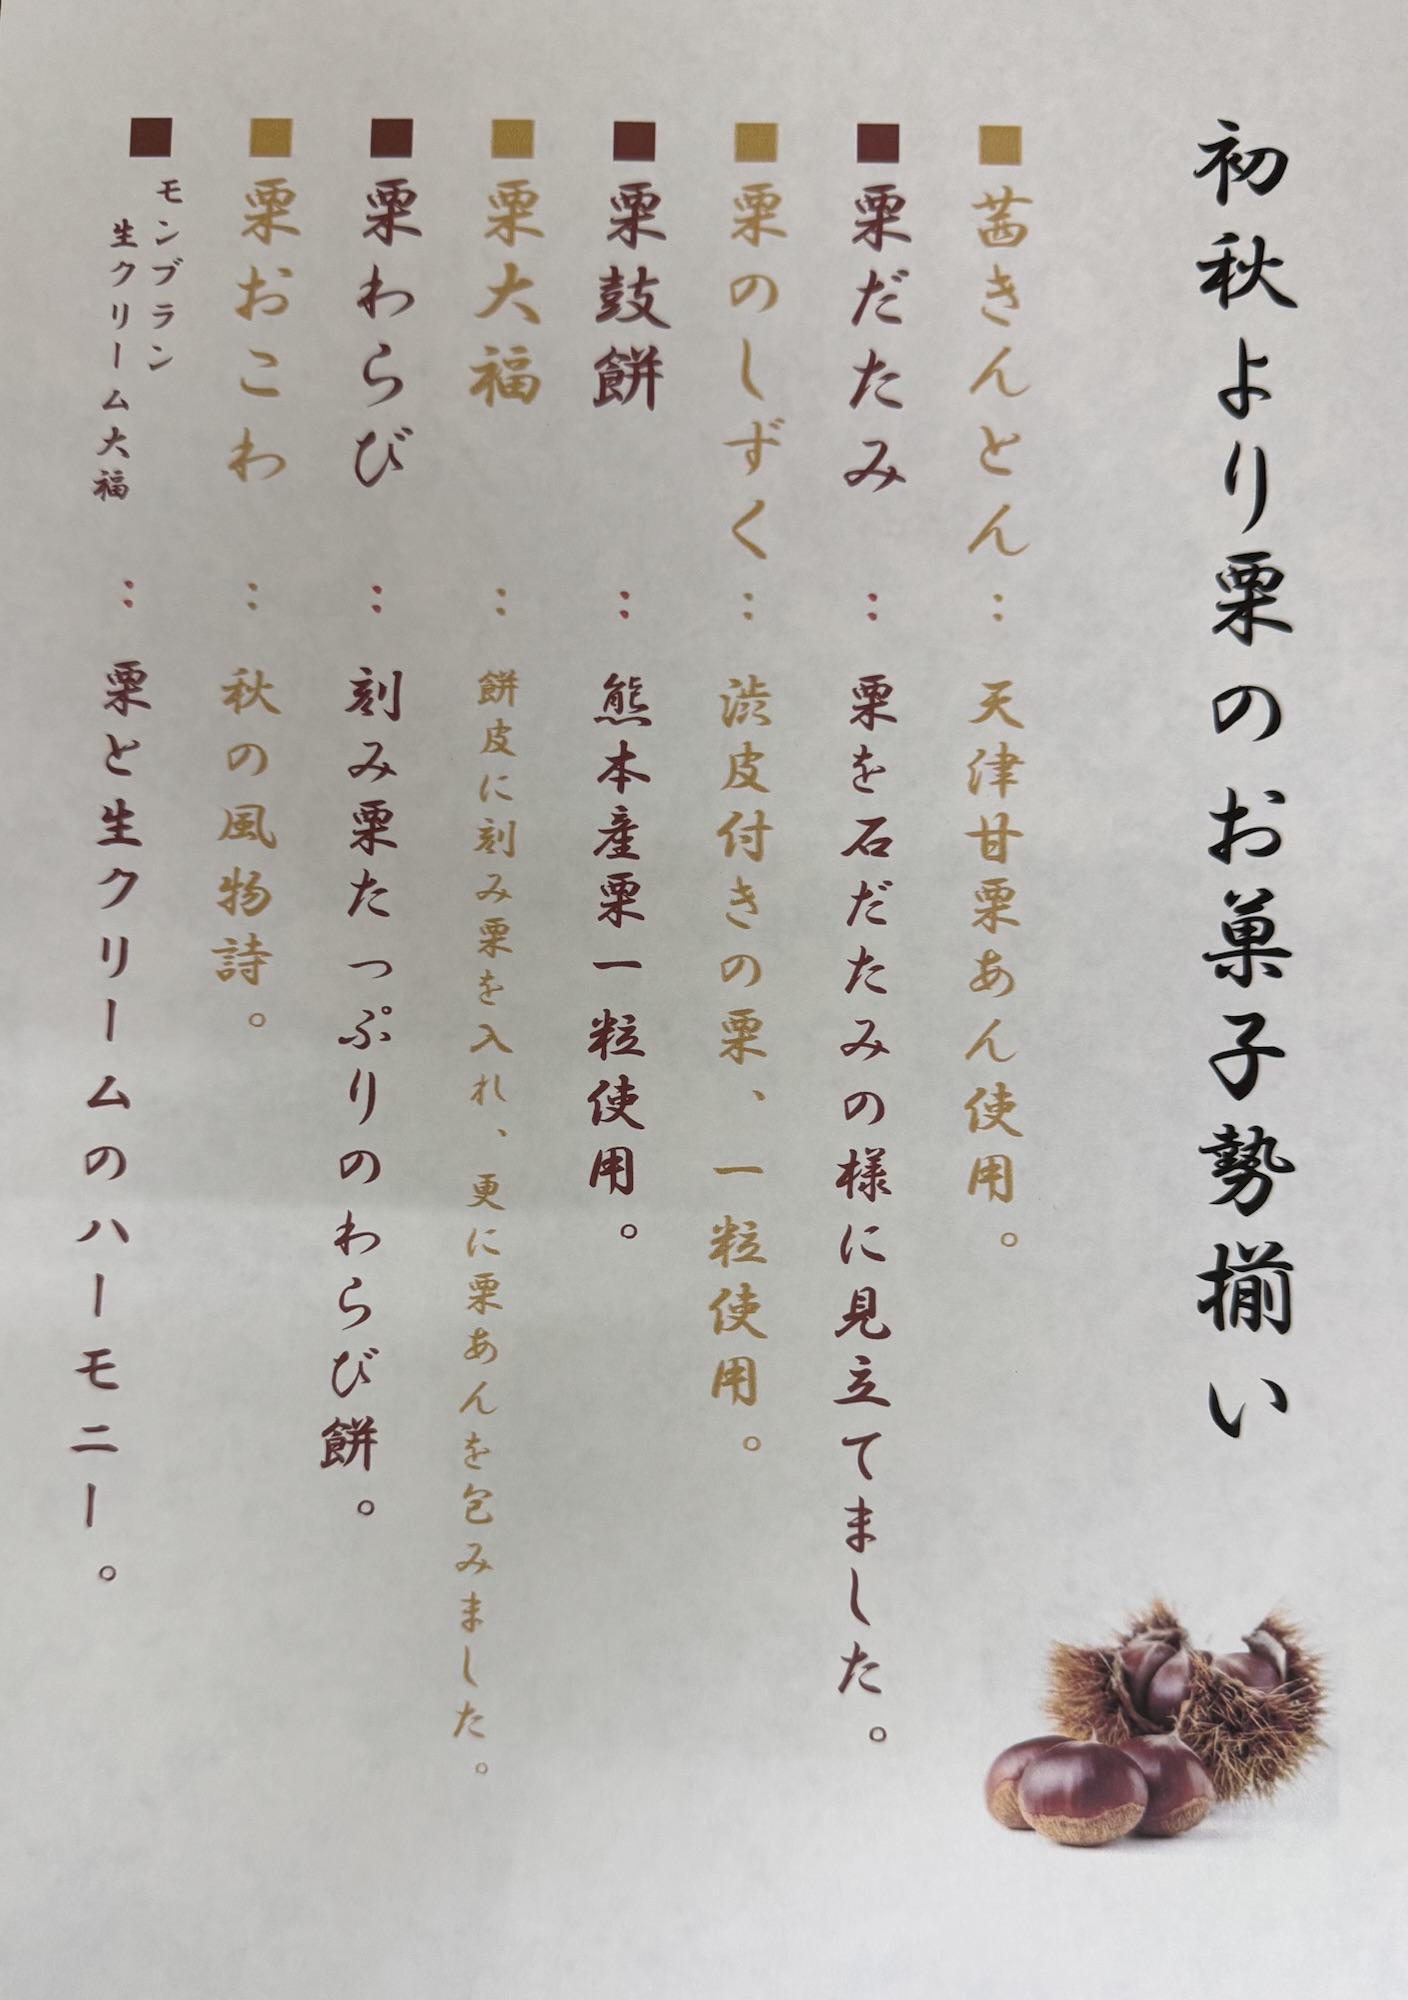 初秋より栗のお菓子勢揃い
■茜きんとん：天津甘栗あん使用。
■栗だたみ：栗を石だたみの様に見立てました。
■栗のしずく：渋皮付きの栗、一粒使用。
■栗鼓餅：熊本産栗一粒使用。
■栗大福：餅皮に刻み栗を入れ、更に栗あんを包みました。
■栗わらび：刻み栗たっぷりのわらび餅。
■栗おこわ：秋の風物詩。
■モンブラン
生クリーム大福：栗と生クリームのハーモニー。